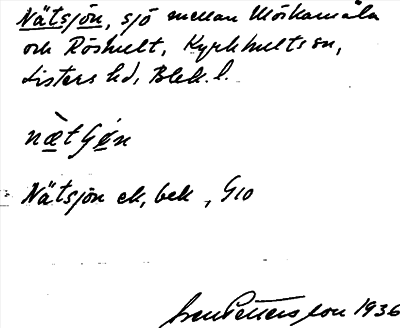 Nätsjön, sjö mellan Möskamåla
och Röshult, Kyrkhults sn,
Listers hd, Blek. l.
nætʃön
Nätsjön ek, bek , G10
Sven Pettersson 1936